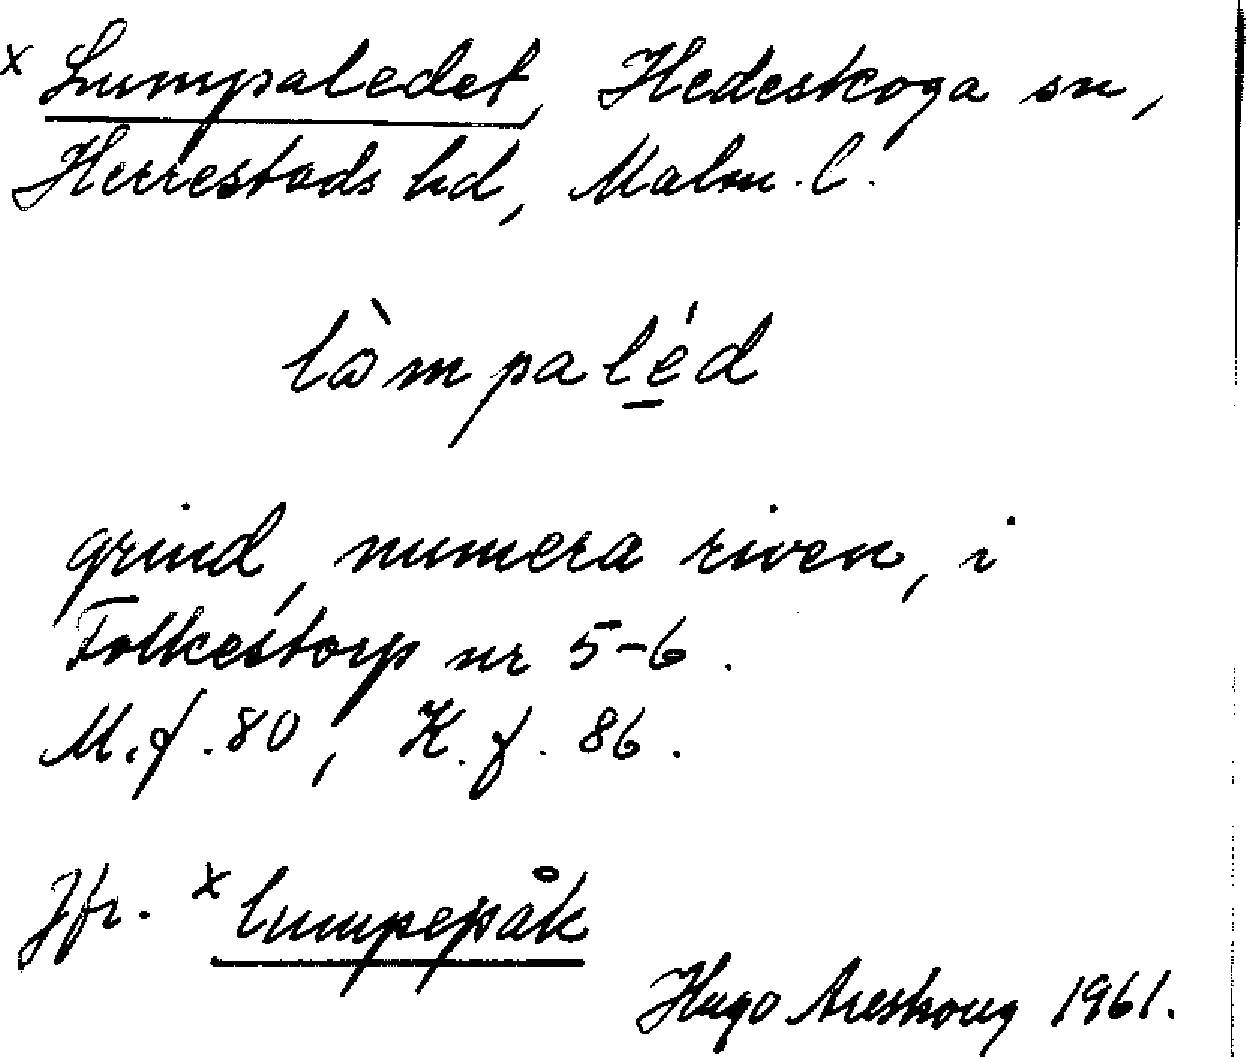 x Lumpaledet, Hedeskoga sn,
Herrestads hd, Malm. l.
lòmpaléd
grind, numera riven, i
Folkestorp nr 5-6.
M.f. 80, K.f. 86.
Jfr. x lumpepåk
Hugo Areskoug 1961.